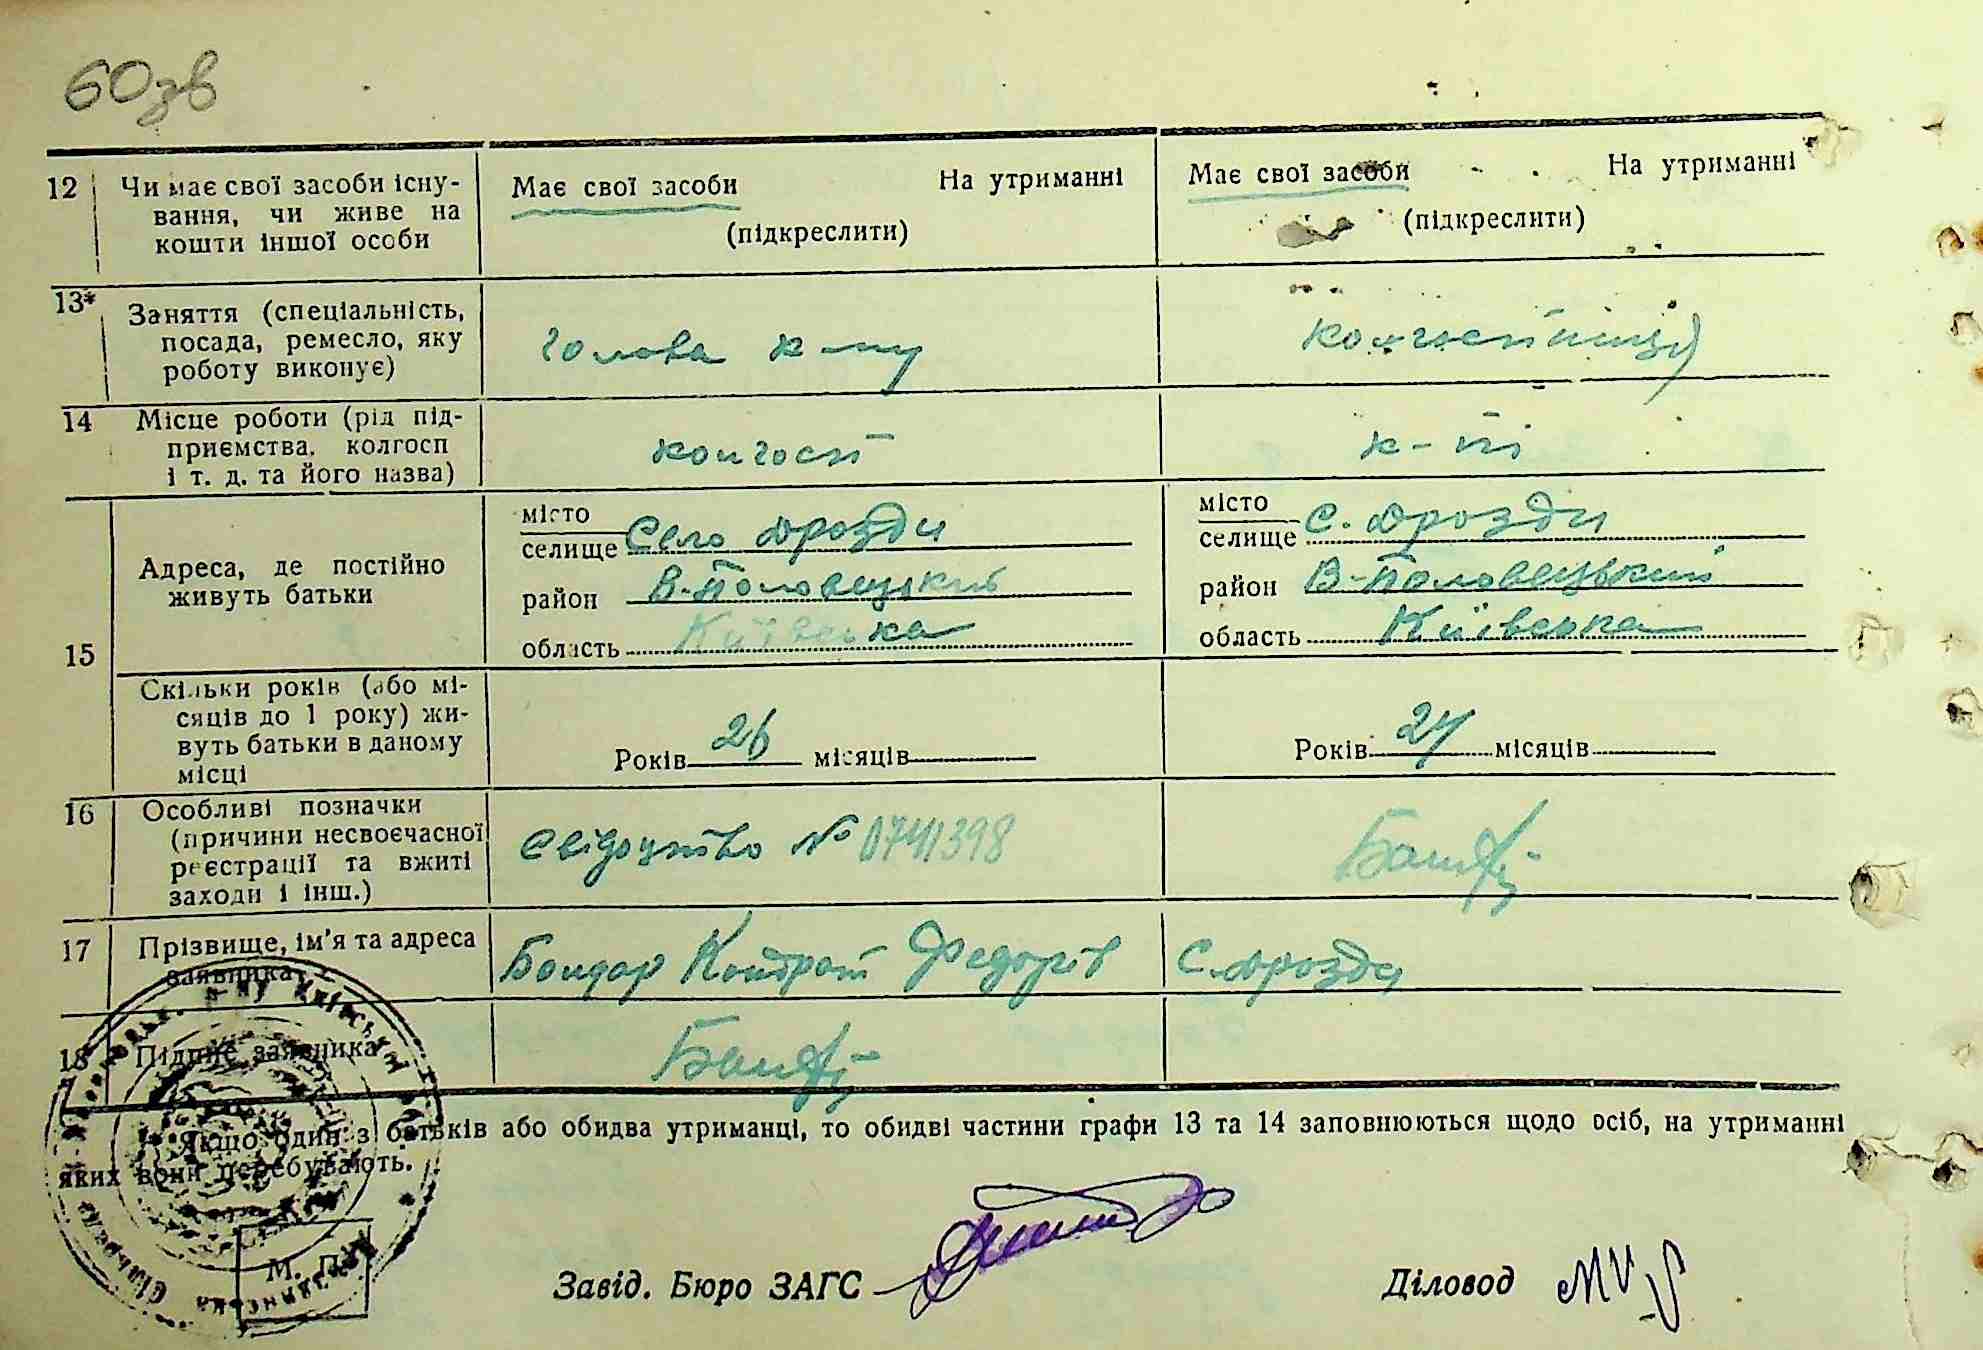 60зв
12 Чи має свої засоби існу-
вання, чи живе на
кошти іншої особи
Має свої засоби На утриманні
(підкреслити)
Має свої засоби На утриманні
(підкреслити)
13* Заняття (спеціальність,
посада, ремесло, яку
роботу виконує)
голова к-пу
колгоспниця
14 Місце роботи (рід під-
приємства, колгосп
і т. д. та його назва)
колгосп
к-пі
15
Адреса, де постійно
живуть батьки
місто
селище Село Дрозди
район В-Половецький
область Київська
місто
селище С. Дрозди
район В-Половецький
область Київська
Скільки років (або мі-
сяців до 1 року) жи-
вуть батьки в даному
місці
Років 26 місяців
Років 24 місяців
16 Особливі позначки
(причини несвоєчасної
реєстрації та вжиті
заходи і інш.)
Свідоцтво № 0741398
17 Прізвище, ім'я та адреса
заявника
Бондар Кондрат Федорів С. Дрозди
18 Підпис заявника
Якщо один з батьків або обидва утриманці, то обидві частини графи 13 та 14 заповнюються щодо осіб, на утриманні
яких вони перебувають.
М. П.
Завід. Бюро ЗАГС
Діловод